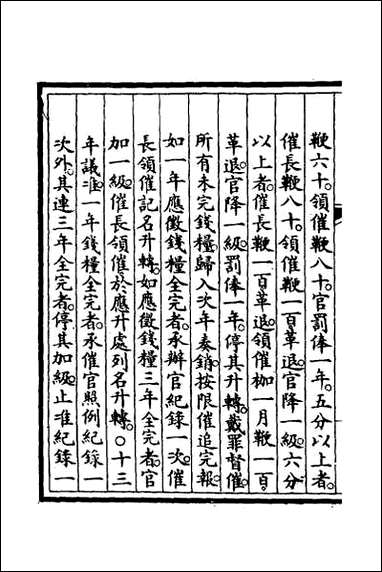 鞭六十。領催鞭八十。官罰俸一年。五分以上者。
催長鞭八十。領催鞭一百革退。官降一級。六分
以上者。催長鞭一百革退。領催枷一月鞭一百
革退。官降一級。罰俸一年。停其升轉。戴罪督催。
所有未完錢糧。歸入次年奏銷。按限催追完報。
如一年應徵錢糧全完者。承辦官紀錄一次。催
長領催記名升轉。如應徵錢糧三年全完者。官
加一級。催長領催於應升處列名升轉。○十三
年議准。一年錢糧全完者。承催官照例紀錄一
次外。其連三年全完者。停其加級。止准紀錄一